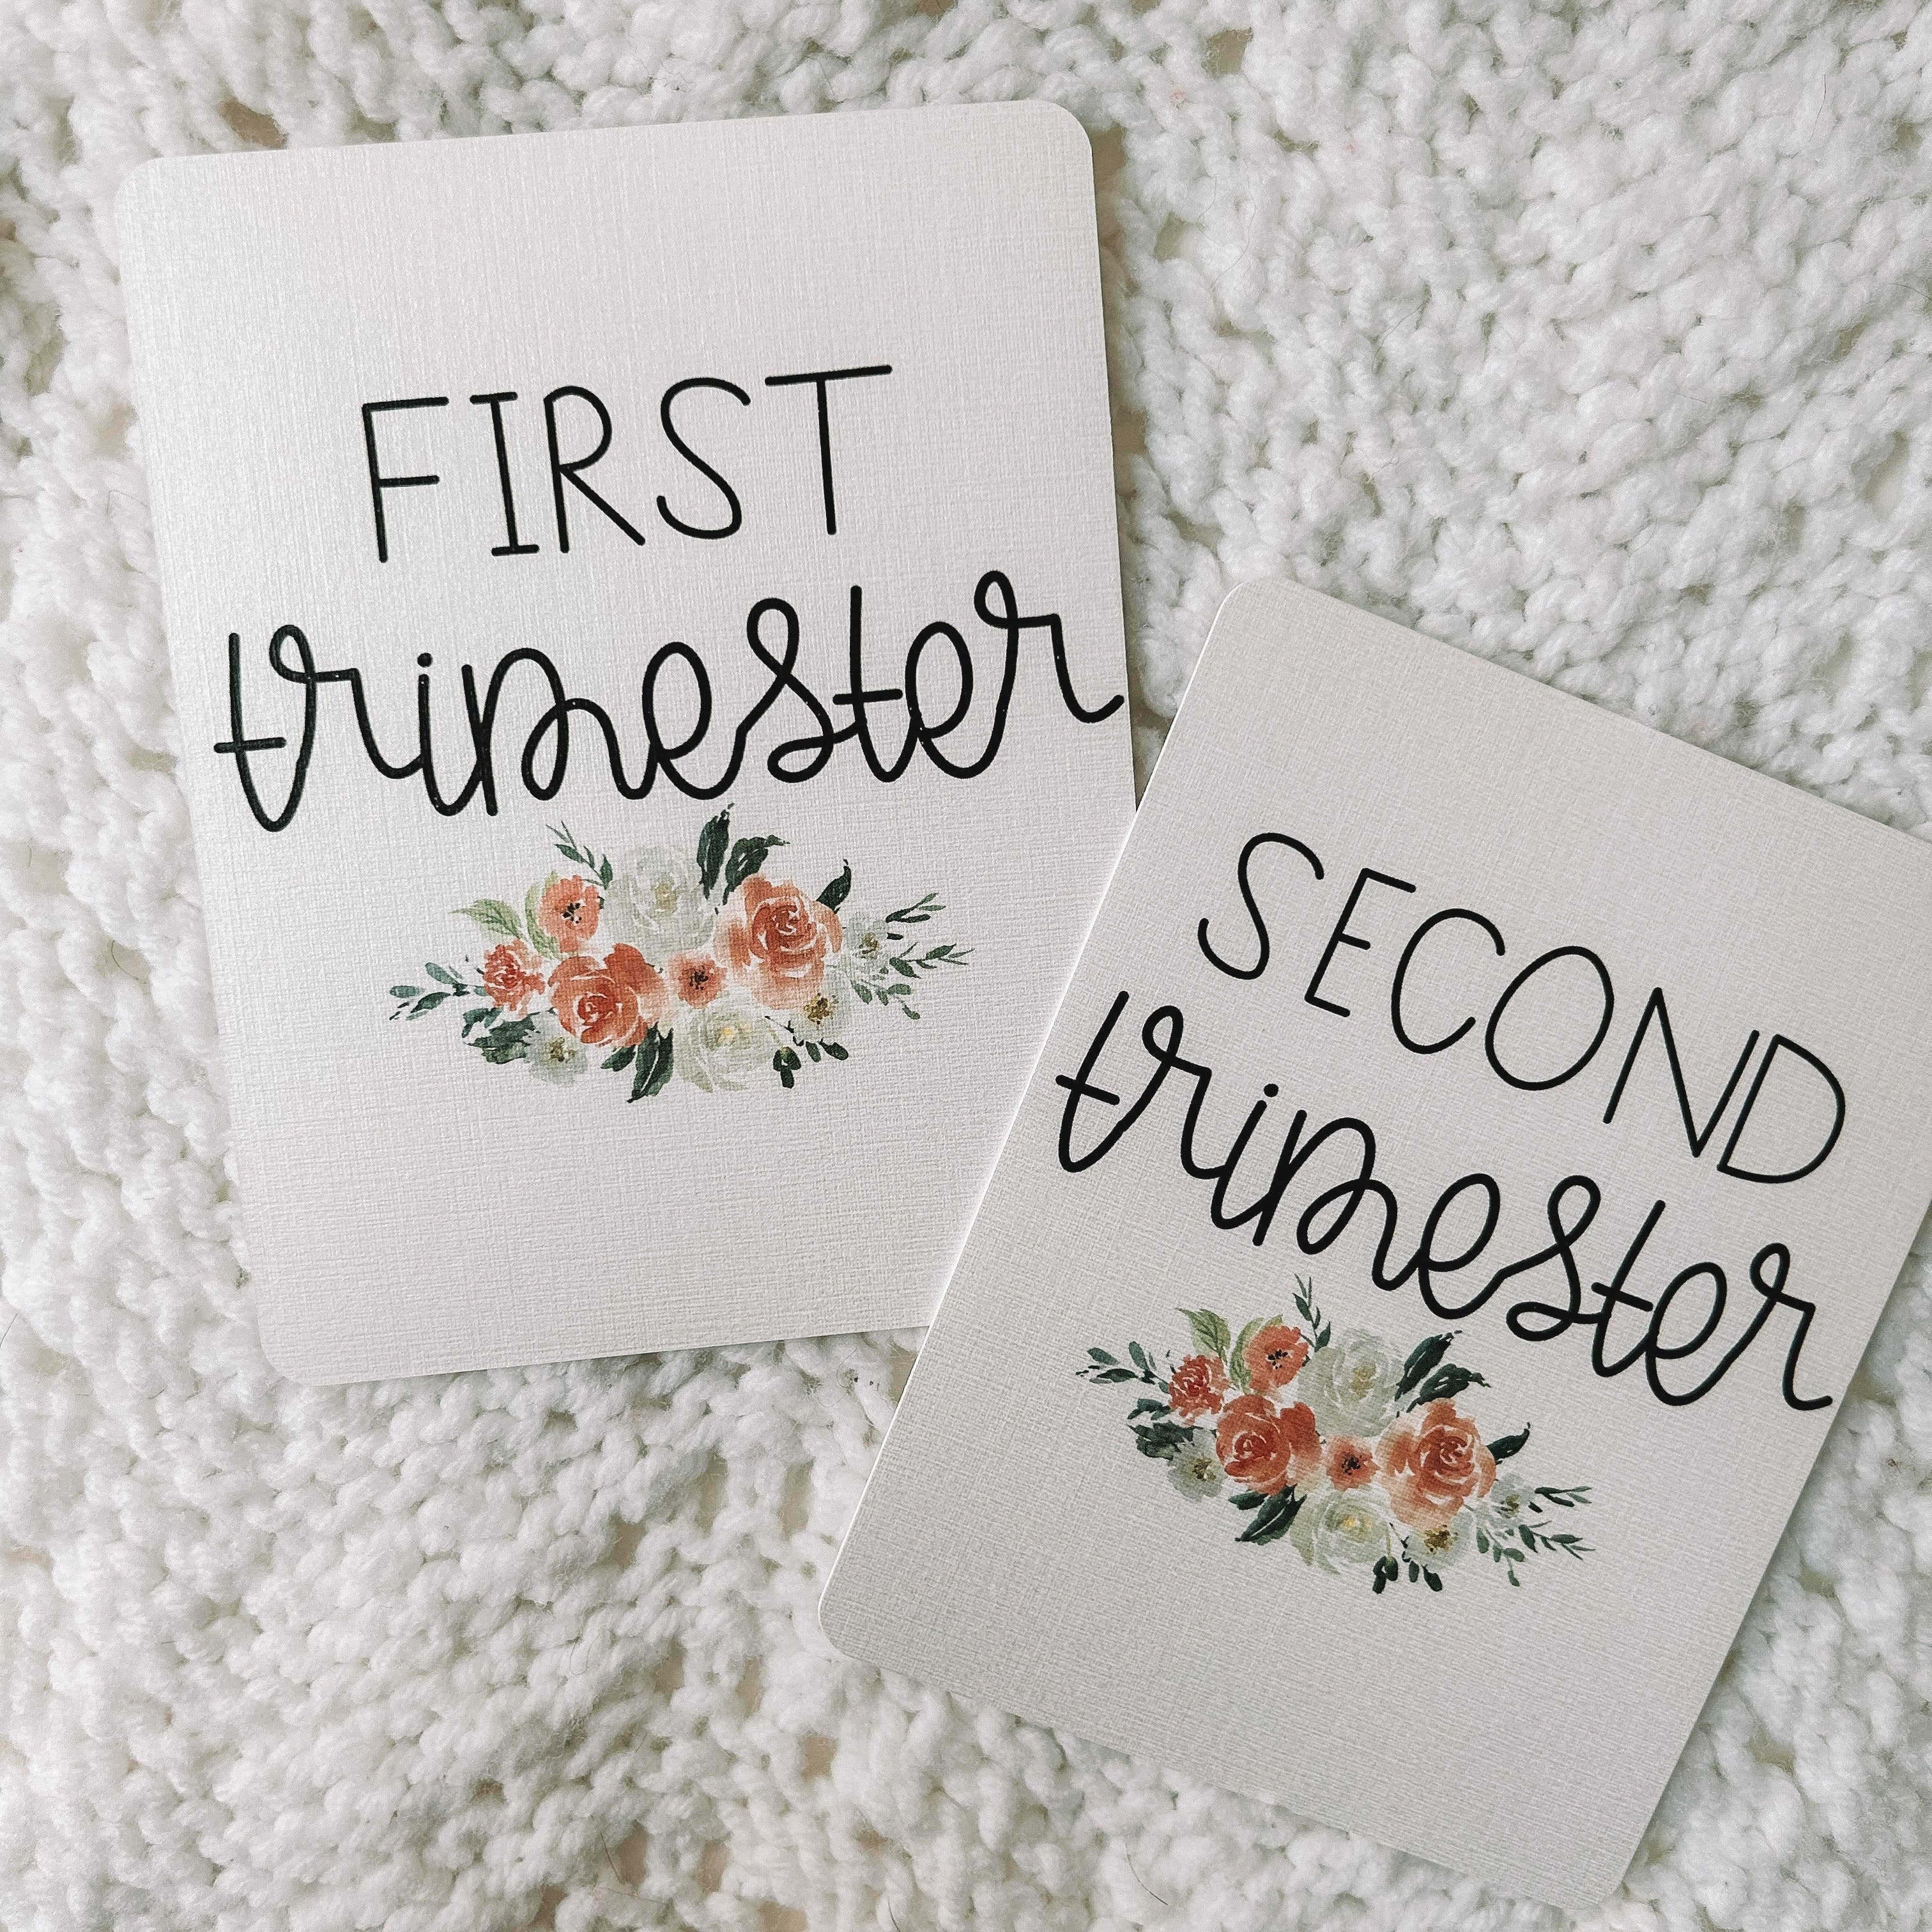 FIRST
trimester
SECOND
trimester